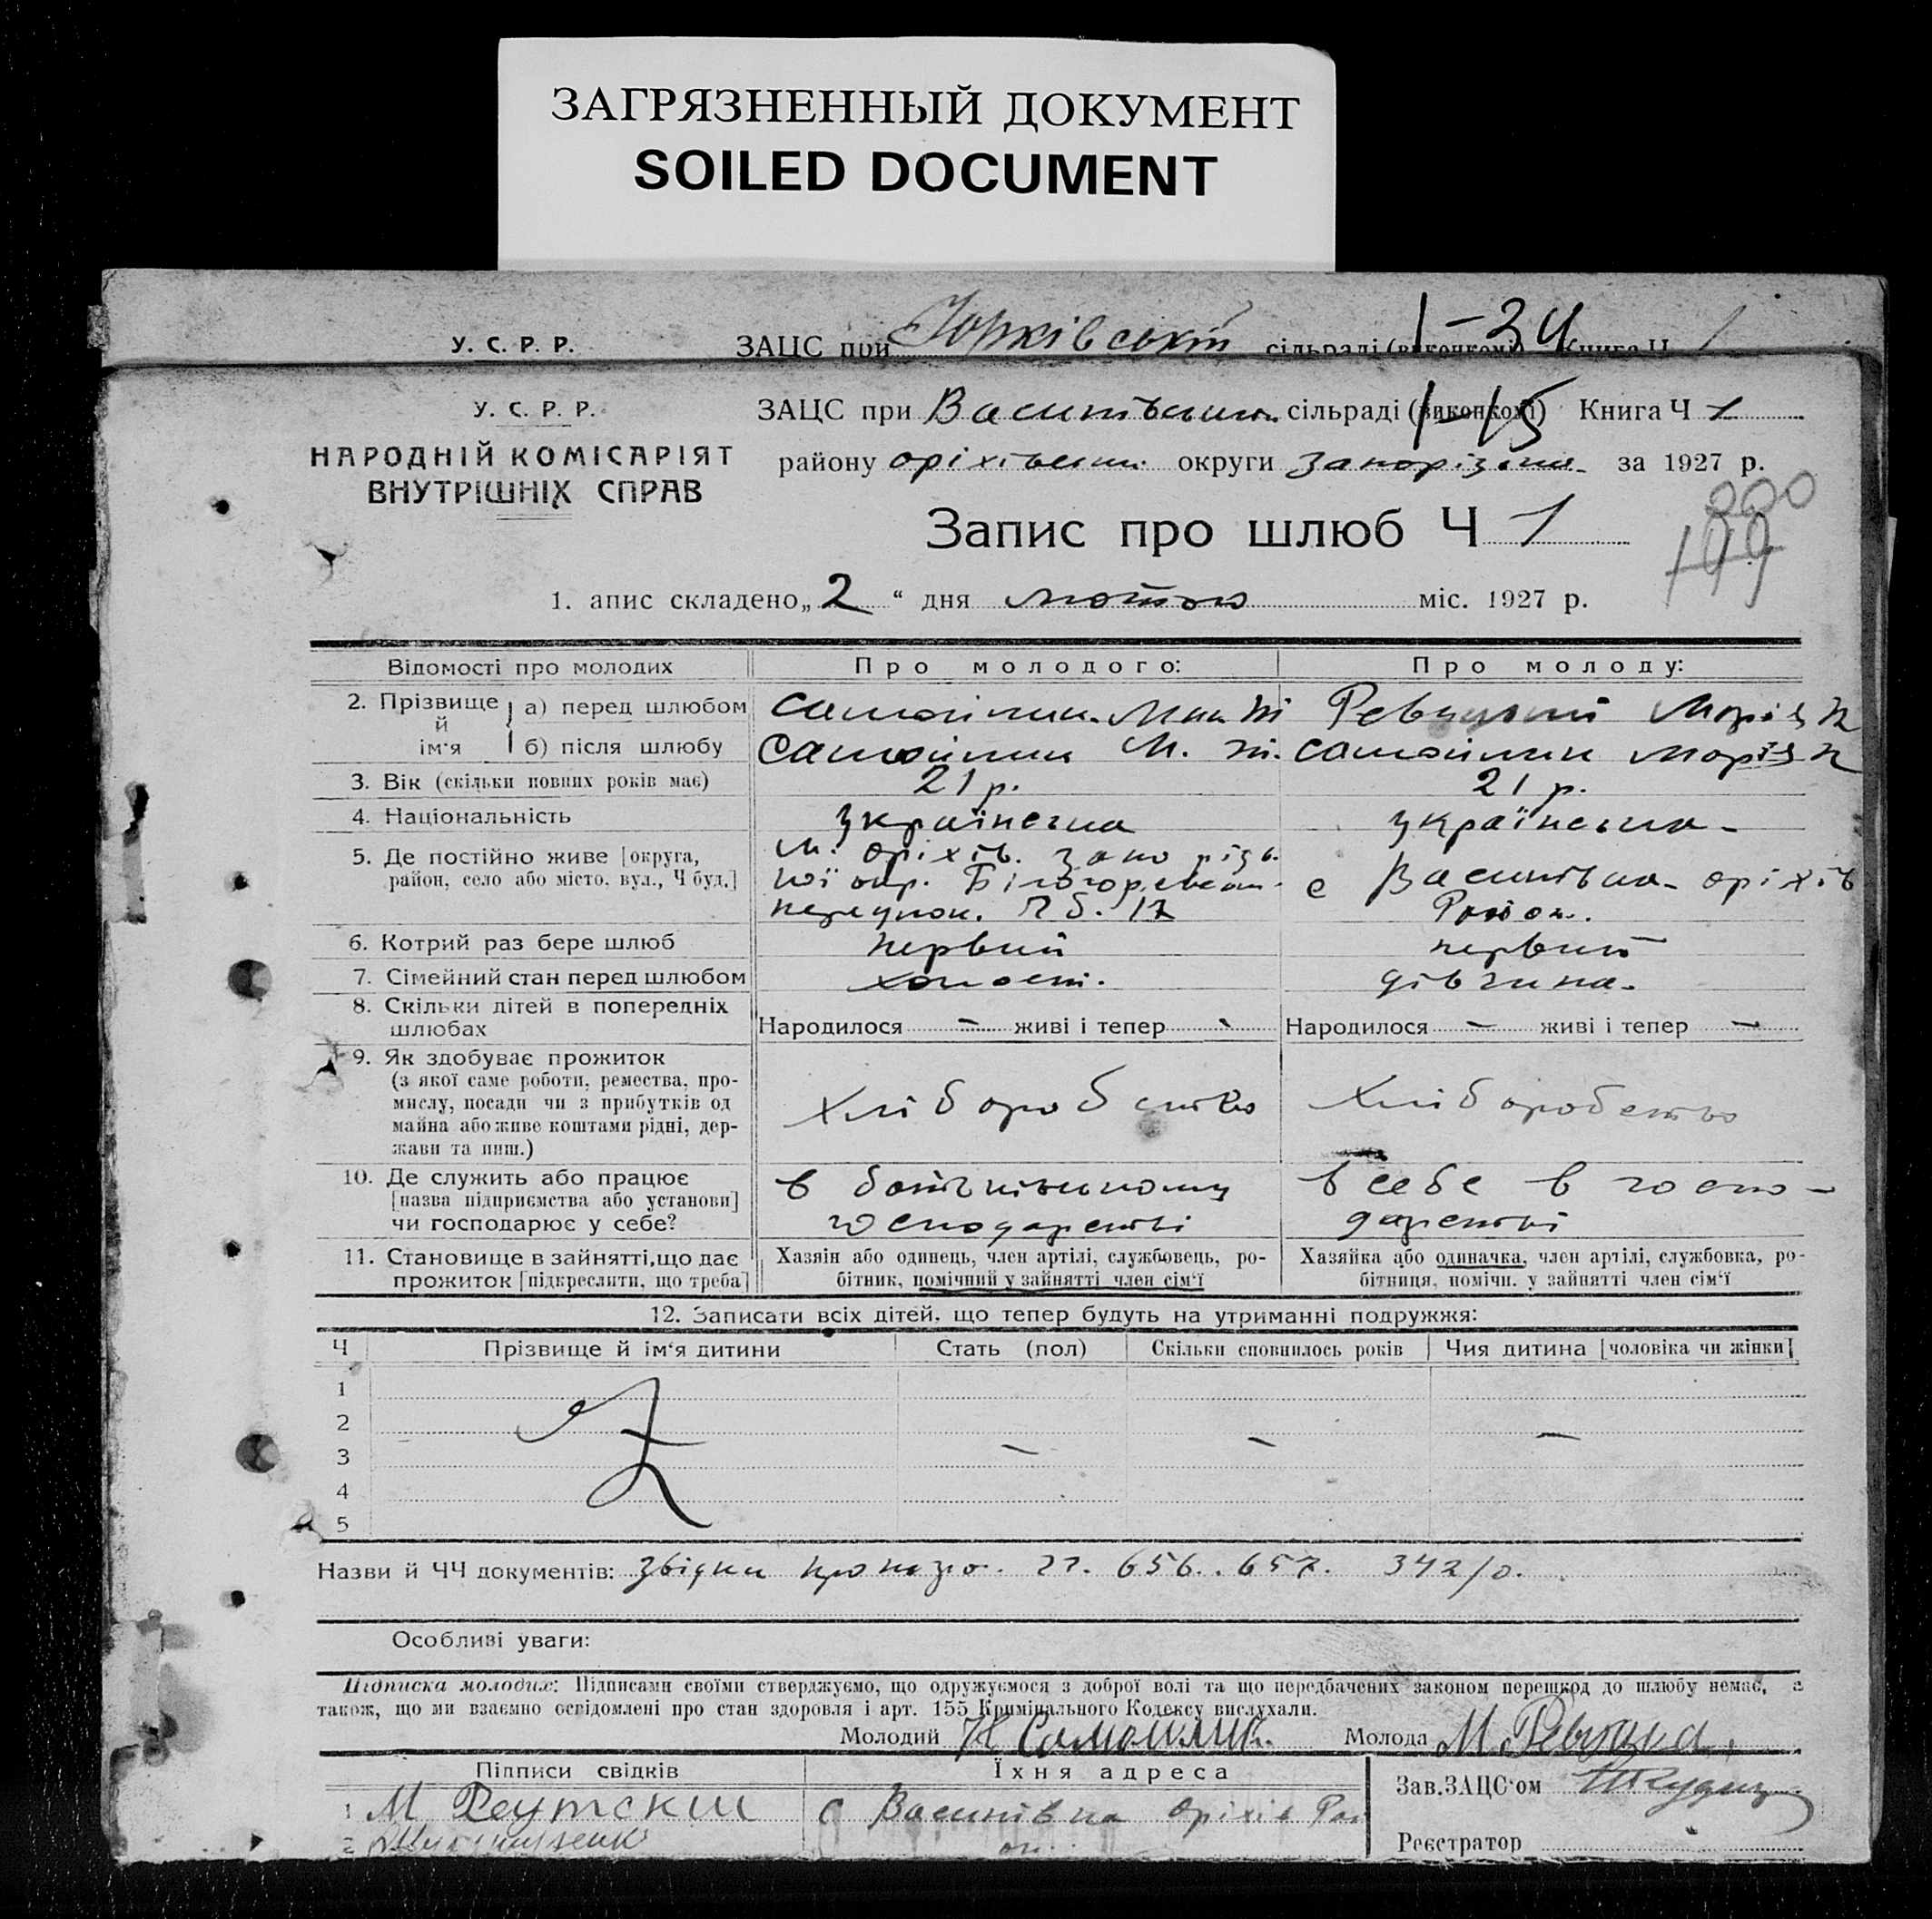 ЗАГРЯЗНЕННЫЙ ДОКУМЕНТ
SOILED DOCUMENT
У. С. Р. Р. ЗАЦС при Юрківській сільраді (виконкомі) Книга Ч 1
1-34
У. С. Р. Р. ЗАЦС при сільраді (виконкомі) Книга Ч 1
1-15
НАРОДНІЙ КОМІСАРІЯТ
ВНУТРІШНІХ СПРАВ
району оріхівськ. округи за 1927 р.
Запис про шлюб Ч 1
200
199
1. апис складено „2“ дня лютого міс. 1927 р.
Відомості про молодих
Про молодого:
Про молоду:
2. Прізвище й ім'я
а) перед шлюбом
Ревуцький Марія
б) після шлюбу
Самойлик М.
Самойлик Марія
3. Вік (скільки повних років має)
21 р.
21 р.
4. Національність
українська
українська
5. Де постійно живе [округа,
район, село або місто, вул., Ч буд.]
м. оріхів.
кої окр.
17
с Васинівка оріхів
Район.
6. Котрий раз бере шлюб
первий
первий
7. Сімейний стан перед шлюбом
холост.
дівчина.
8. Скільки дітей в попередніх
шлюбах
Народилося – живі і тепер -
Народилося – живі і тепер –
9. Як здобуває прожиток
(з якої саме роботи, ремества, про-
мислу, посади чи з прибутків од
майна або живе коштами рідні, дер-
жави та инш.)
Хліборобство
Хліборобство
10. Де служить або працює
[назва підприємства або установи]
чи господарює у себе?
в батьківському
господарстві
в себе в госпо-
дарстві
11. Становище в зайнятті, що дає
прожиток [підкреслити, що треба]
Хазяін або одинець, член артілі, службовець, ро-
бітник, помічний у зайнятті член сім'ї
Хазяйка або одиначка, член артілі, службовка, ро-
бітниця, помічн. у зайнятті член сім'ї
12. Записати всіх дітей, що тепер будуть на утриманні подружжя:
Ч Прізвище й ім'я дитини Стать (пол) Скільки сповнилось років Чия дитина [чоловіка чи жінки]
1
2
3
4
5
Назви й ЧЧ документів: 656. 657. 342/0.
Особливі уваги:
Підписка молодих: Підписами своїми стверджуємо, що одружуємося з доброї волі та що передбачених законом перешкод до шлюбу немає, а
також, що ми взаємно освідомлені про стан здоровля і арт. 155 Кримінального Кодексу вислухали.
Молодий Самойлик. Молода М. Ревуцка
Підписи свідків Їхня адреса
Зав.ЗАЦС'ом
1 М Реутский с Васинівка Оріхів Рай
2 он.
Реєстратор